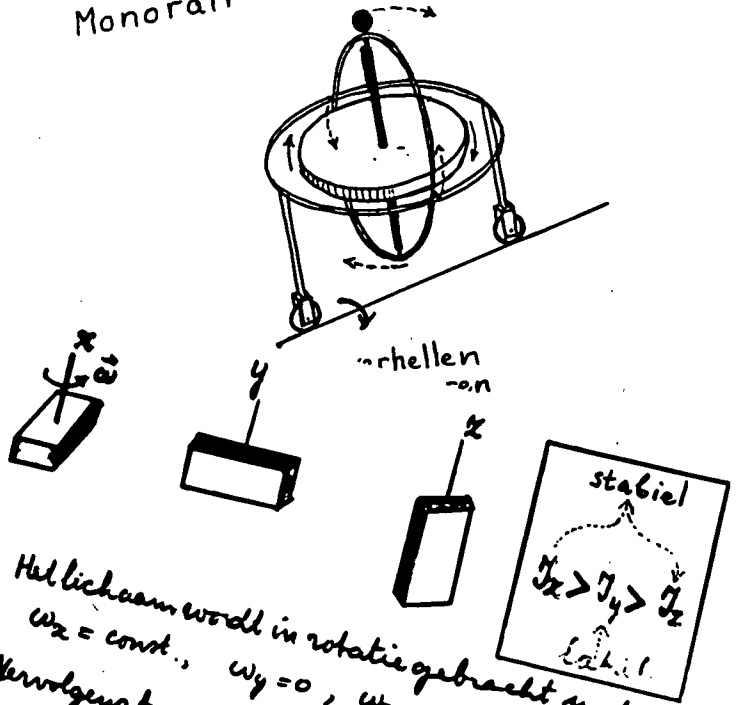 Monorail
rhellen
x
ω⃗
y
z
stabiel
J_x > J_y > J_z
labiel
Het lichaam wordt in rotatie gebracht
ω_x = const., ω_y = 0,